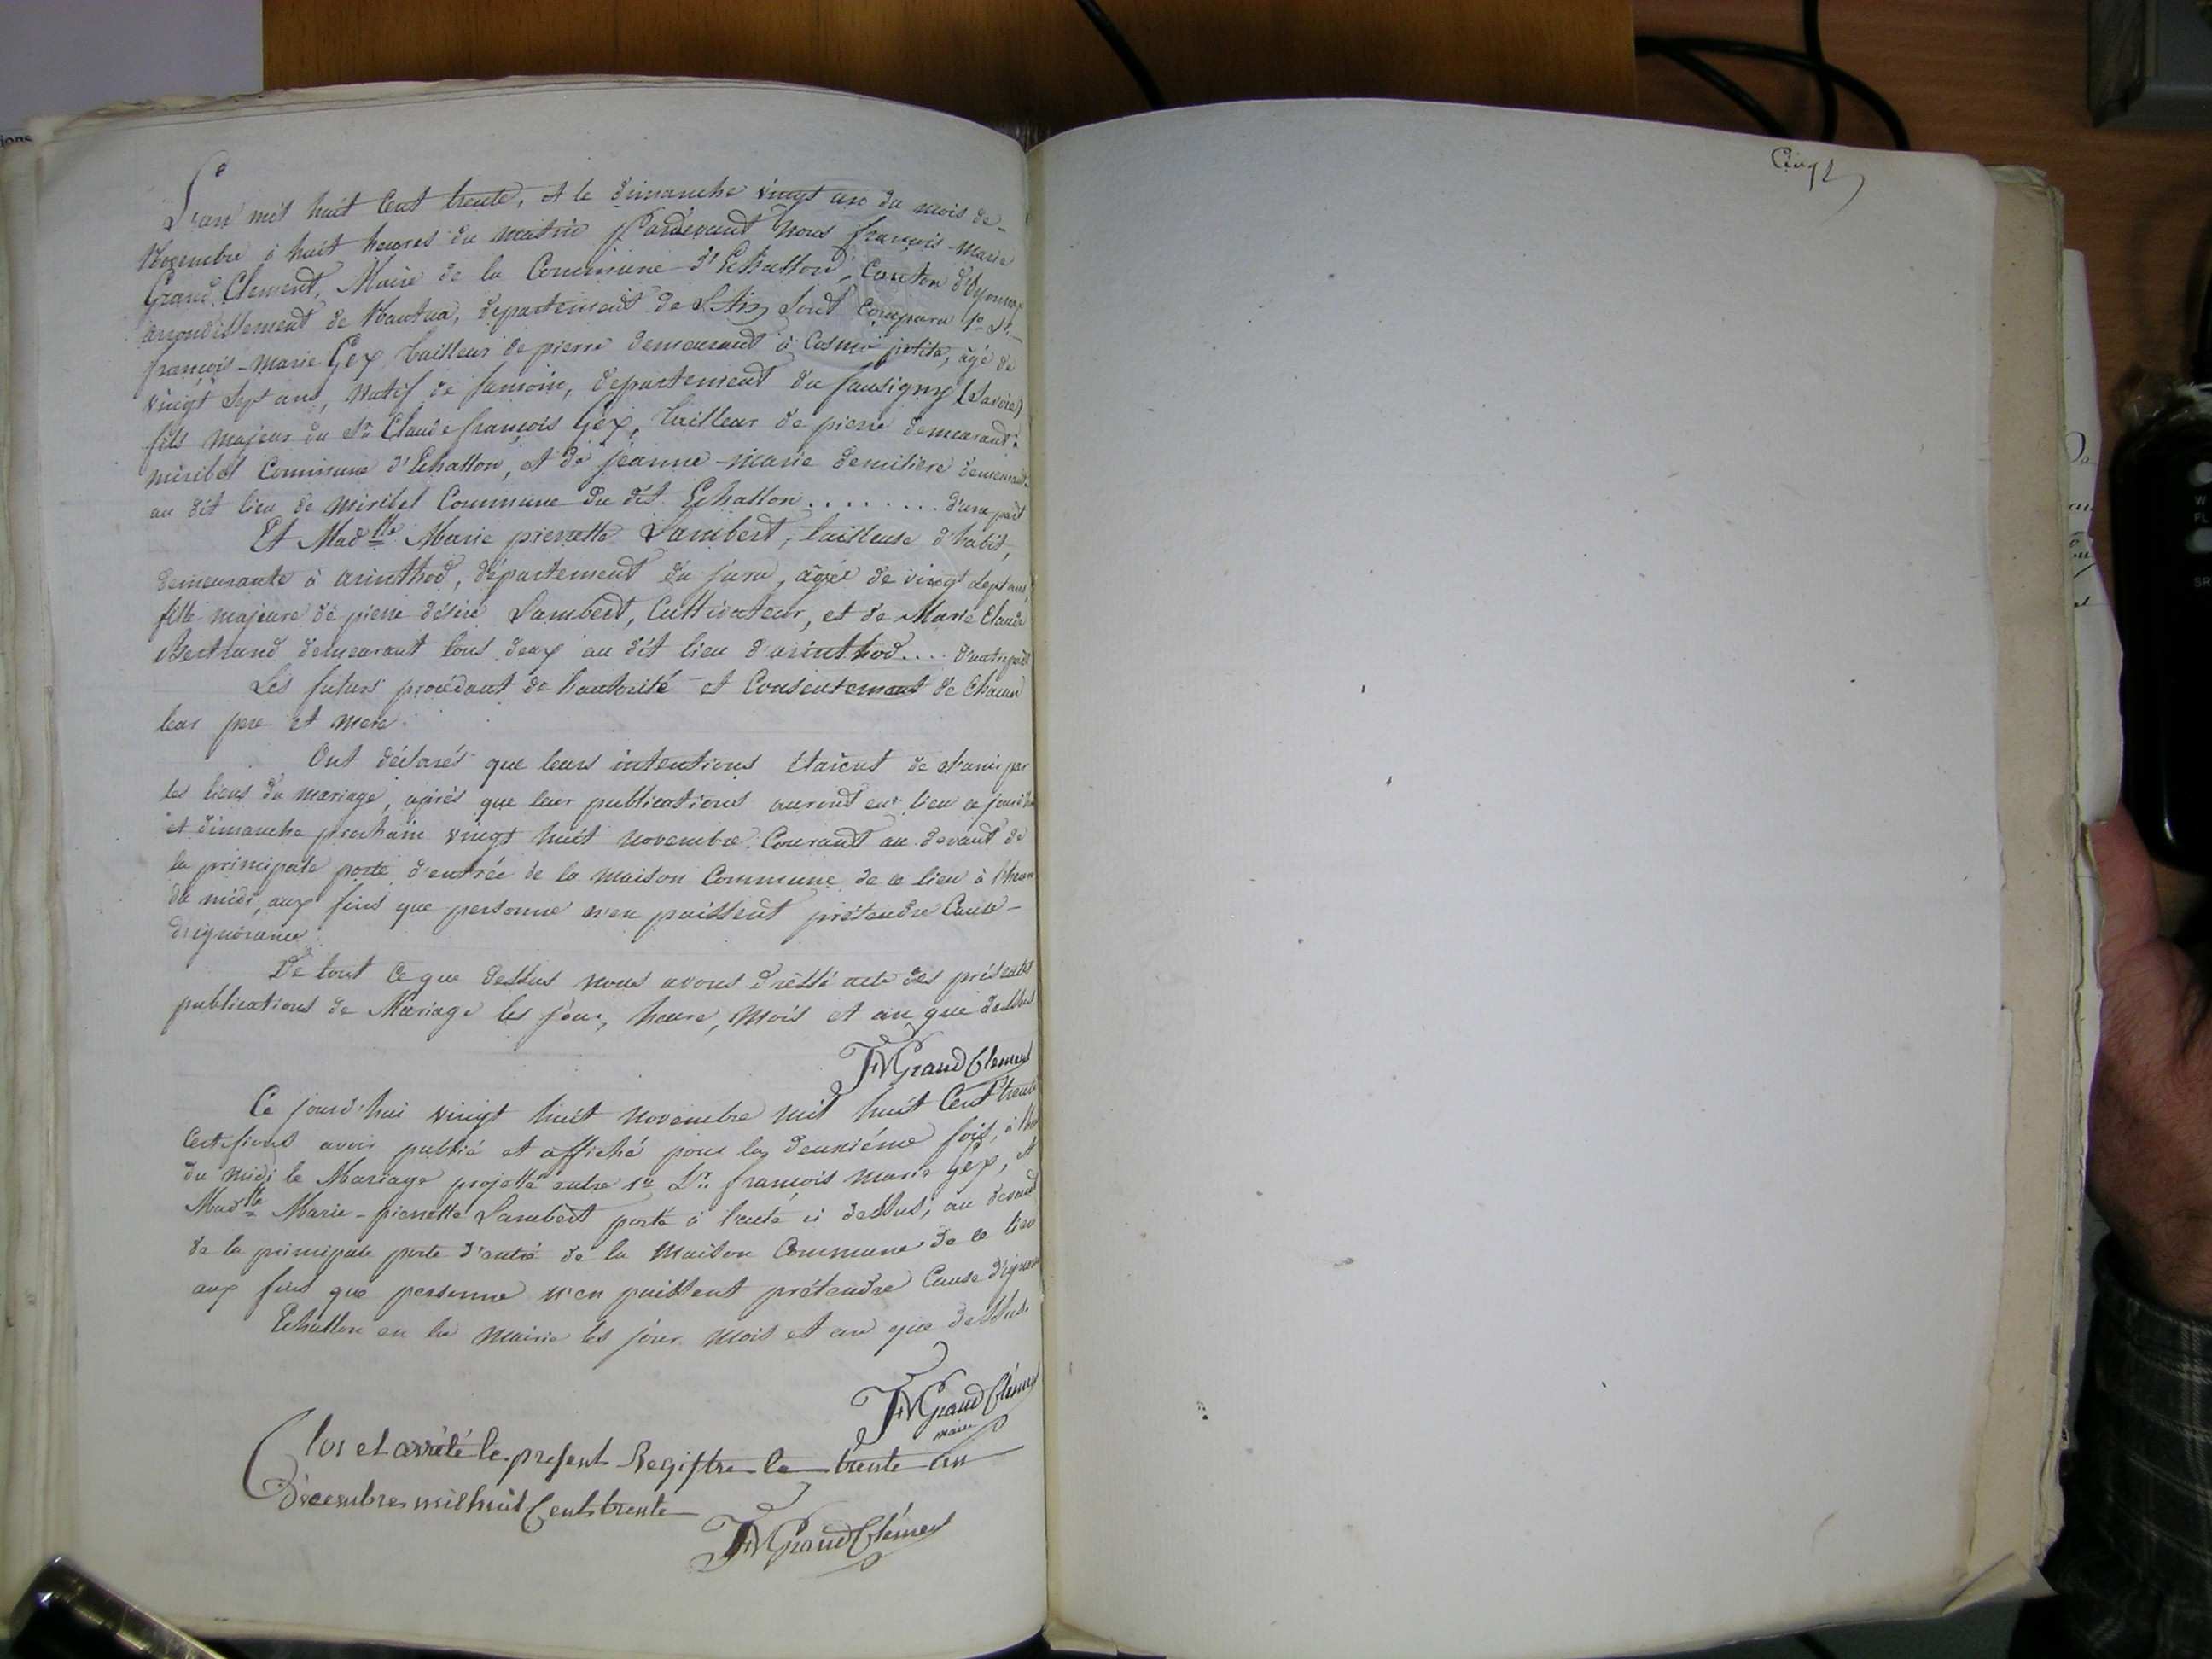 L'an mil huit Cent trente, et le dimanche vingt un du mois de
Novembre à huit heures du matin Pardevant Nous françois-Marie
Grand Clement, Maire de la Commune d'Echallon, Canton d'Oyonnax
arrondissement de Nantua, departement de L'Ain sont comparu 1º Sr.
françois-marie Gex tailleur de pierre demeurant à petite, âgé de
vingt sept ans, natif de samoin, departement du fausigny (Savoie)
fils majeur du Sr. Claude françois Gex, tailleur de pierre demeurant à
miribel Commune d'Echallon, et de jeanne-marie demeurant
au dit lieu de miribel Commune du dit Echallon . . . . . . . . d'une part
Et Madlle Marie pierrette Lambert, tailleuse d'habit,
demeurante à arinthod, département du jura, âgée de vingt sept ans,
fille majeure de pierre désiré Lambert, Cultivateur, et de Marie Claude
Bertrand demeurant tous deux au dit lieu d'arinthod.... d'autre part
Les futurs procédant de l'autorité et Consentement de Chacun
leur pere et mere.
Ont déclarés que leurs intentions étaient de s'unir par
les liens du mariage, après que leur publications auront eut lieu
et dimanche prochain vingt huit novembre Courant au devant de
la principale porte d'entrée de la maison Commune de ce lieu à l'heure
de midi, aux fins que personne n'en puissent prétendre Cause
d'ignorance
De tout ce que dessus nous avons dressé acte des présentes
publications de Mariage les jour, heure, mois et an que dessus
FM Grand Clement
Ce jourd'hui vingt huit novembre mil huit Cent trente
Certifions avoir publié et affiché pour la deuxiéme fois, à l'heure
du midi le Mariage projetté entre 1º Sr. françois marie Gex, et
Madlle Marie-pierrette Lambert porté à l'acte ci dessus, au devant
de la principale porte d'entré de la Maison Commune de ce lieu
aux fins que personne n'en puissent prétendre Cause d'ignorance
Echallon en la Mairie les jour mois et an que dessus.
FM Grand Clément
maire
Clos et arrété le present Registre le trente un
Décembre mil huit Cent trente
FM Grand Clément
Cinq